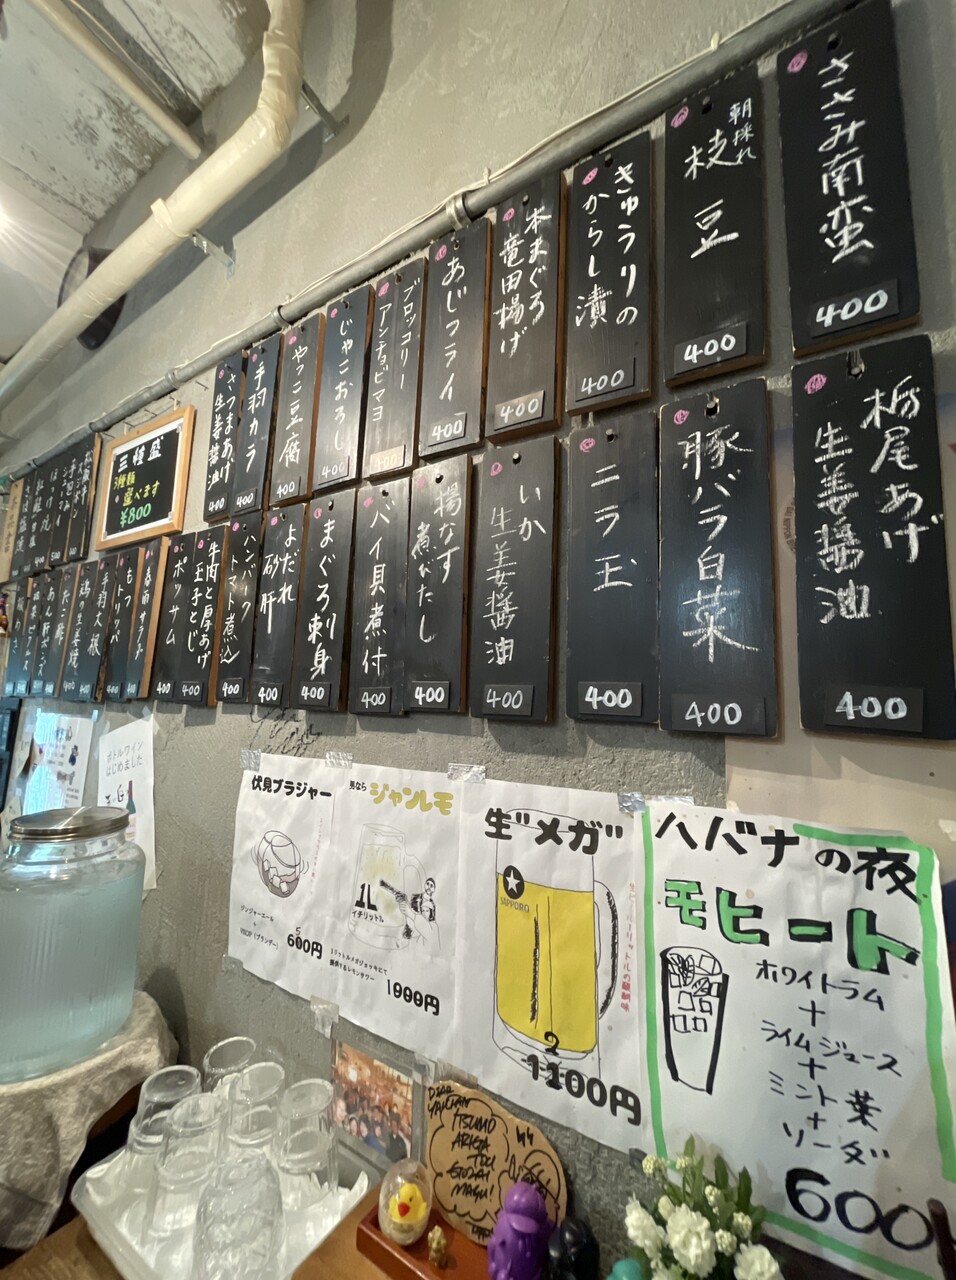 ささみ南蛮
400
朝採れ
枝豆
400
きゅうりの
からし漬
400
本まぐろ
竜田揚げ
400
あじフライ
400
ブロッコリー
アンチョビマヨ
400
じゃこおろし
400
やっこ豆腐
400
手羽カラ
400
さつまあげ
生姜醤油
400
栃尾あげ
生姜醤油
400
豚バラ白菜
400
ニラ玉
400
いか
生姜醤油
400
揚なす
煮びたし
400
バイ貝煮付
400
まぐろ刺身
400
よだれ
砂肝
400
ハンバーグ
トマト煮込
400
牛肉と厚あげ
玉子とじ
400
ポッサム
400
春雨サラダ
400
もつ
トリッパ
400
手羽大根
400
鶏の生姜焼
400
三種盛
3種類
選べます
¥800
ボトルワイン
はじめました
伏見ブラジャー
ジンジャーエール
+
VSOP(ブランデー)
600円
5
男なら
ジャンレモ
1L
イチリットル
1リットルメガジョッキにて
提供するレモンサワー
1000円
生"メガ"
SAPPORO
2
1100円
ハバナの夜
モヒート
ホワイトラム
+
ライムジュース
+
ミント葉
+
ソーダ
600
DEAR
ITSUMO
ARIGA
TOU
GOZAI
MASU!